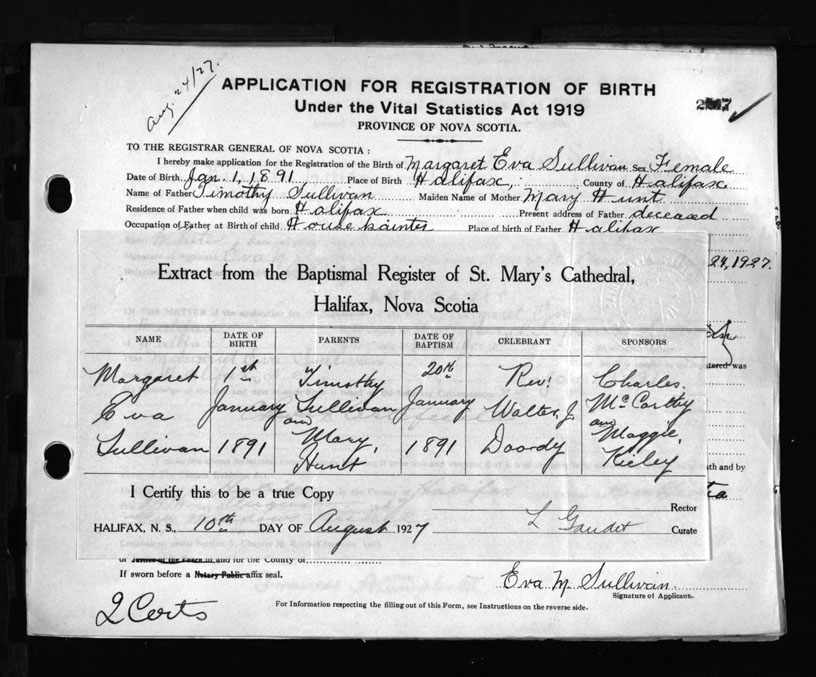 Aug. 24/27.
APPLICATION FOR REGISTRATION OF BIRTH
Under the Vital Statistics Act 1919
PROVINCE OF NOVA SCOTIA.
TO THE REGISTRAR GENERAL OF NOVA SCOTIA :
I hereby make application for the Registration of the Birth of Margaret Eva Sullivan Sex Female
Date of Birth Jan. 1, 1891 Place of Birth Halifax, County of Halifax
Name of Father Timothy Sullivan Maiden Name of Mother Mary Hunt
Residence of Father when child was born Halifax Present address of Father deceased
Occupation of Father at Birth of child House painter Place of birth of Father Halifax
24, 1927.
Extract from the Baptismal Register of St. Mary's Cathedral,
Halifax, Nova Scotia
NAME DATE OF BIRTH PARENTS DATE OF BAPTISM CELEBRANT SPONSORS
Margaret 1st Timothy 20th Rev. Charles
Eva January Sullivan January Walter J. McCarthy
and and
Sullivan 1891 Mary 1891 Maggie
Hunt Kieley
was
I Certify this to be a true Copy
and by
Rector
HALIFAX, N. S., 10th DAY OF August 1927 L Gaudet Curate
of Justice of the Peace in and for the County of
If sworn before a Notary Public affix seal.
Eva M. Sullivan
Signature of Applicant.
2 Certs
For Information respecting the filling out of this Form, see Instructions on the reverse side.